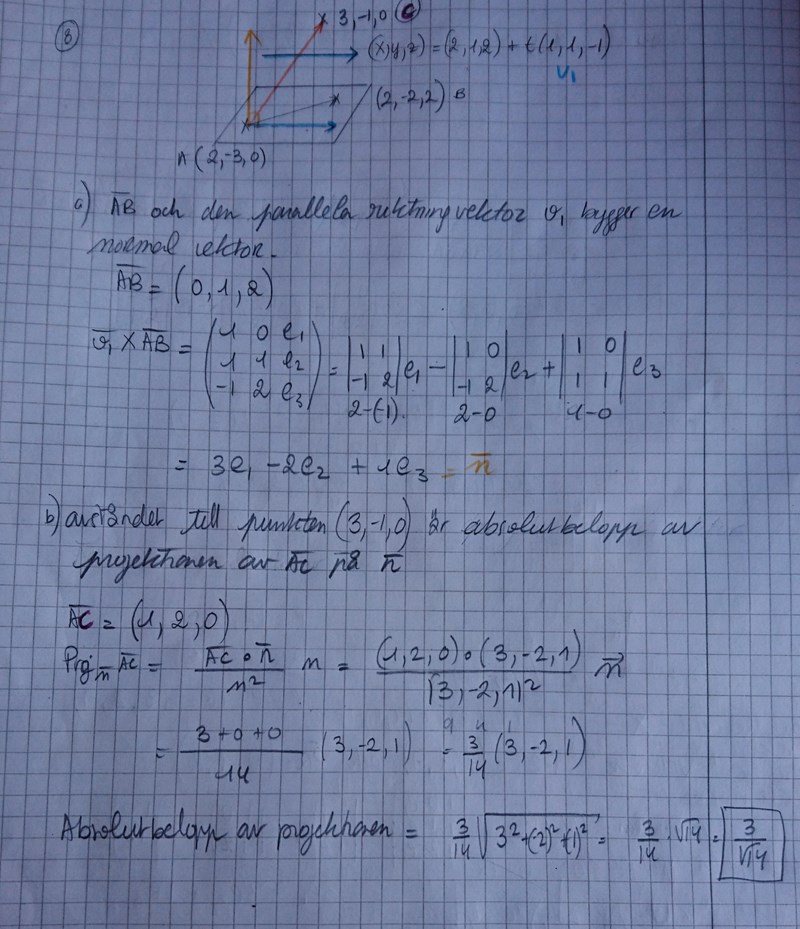 8
3,-1,0 C
(x,y,z) = (2,1,2) + t(1,1,-1)
v₁
(2,-2,2) B
A (2,-3,0)
a) AB och den parallela riktningvektor v₁ bygger en
normal vektor.
AB = (0,1,2)
v₁ × AB = (1 0 e₁ / 1 1 e₂ / -1 2 e₃) = |1 1 / -1 2| e₁ - |1 0 / -1 2| e₂ + |1 0 / 1 1| e₃
2-(-1). 2-0 1-0
= 3e₁ - 2e₂ + 1e₃ = n
b) avståndet till punkten (3,-1,0) är absolutbelopp av
projektionen av AC på n
AC = (1,2,0)
Proj n AC = AC∘n / n² n = (1,2,0)∘(3,-2,1) / |3,-2,1|² n
9 4 1
= 3+0+0 / 14 (3,-2,1) = 3/14 (3,-2,1)
Absolutbelopp av projektionen = 3/14 √(3²+(-2)²+(1)²) = 3/14 · √14 = 3/√14